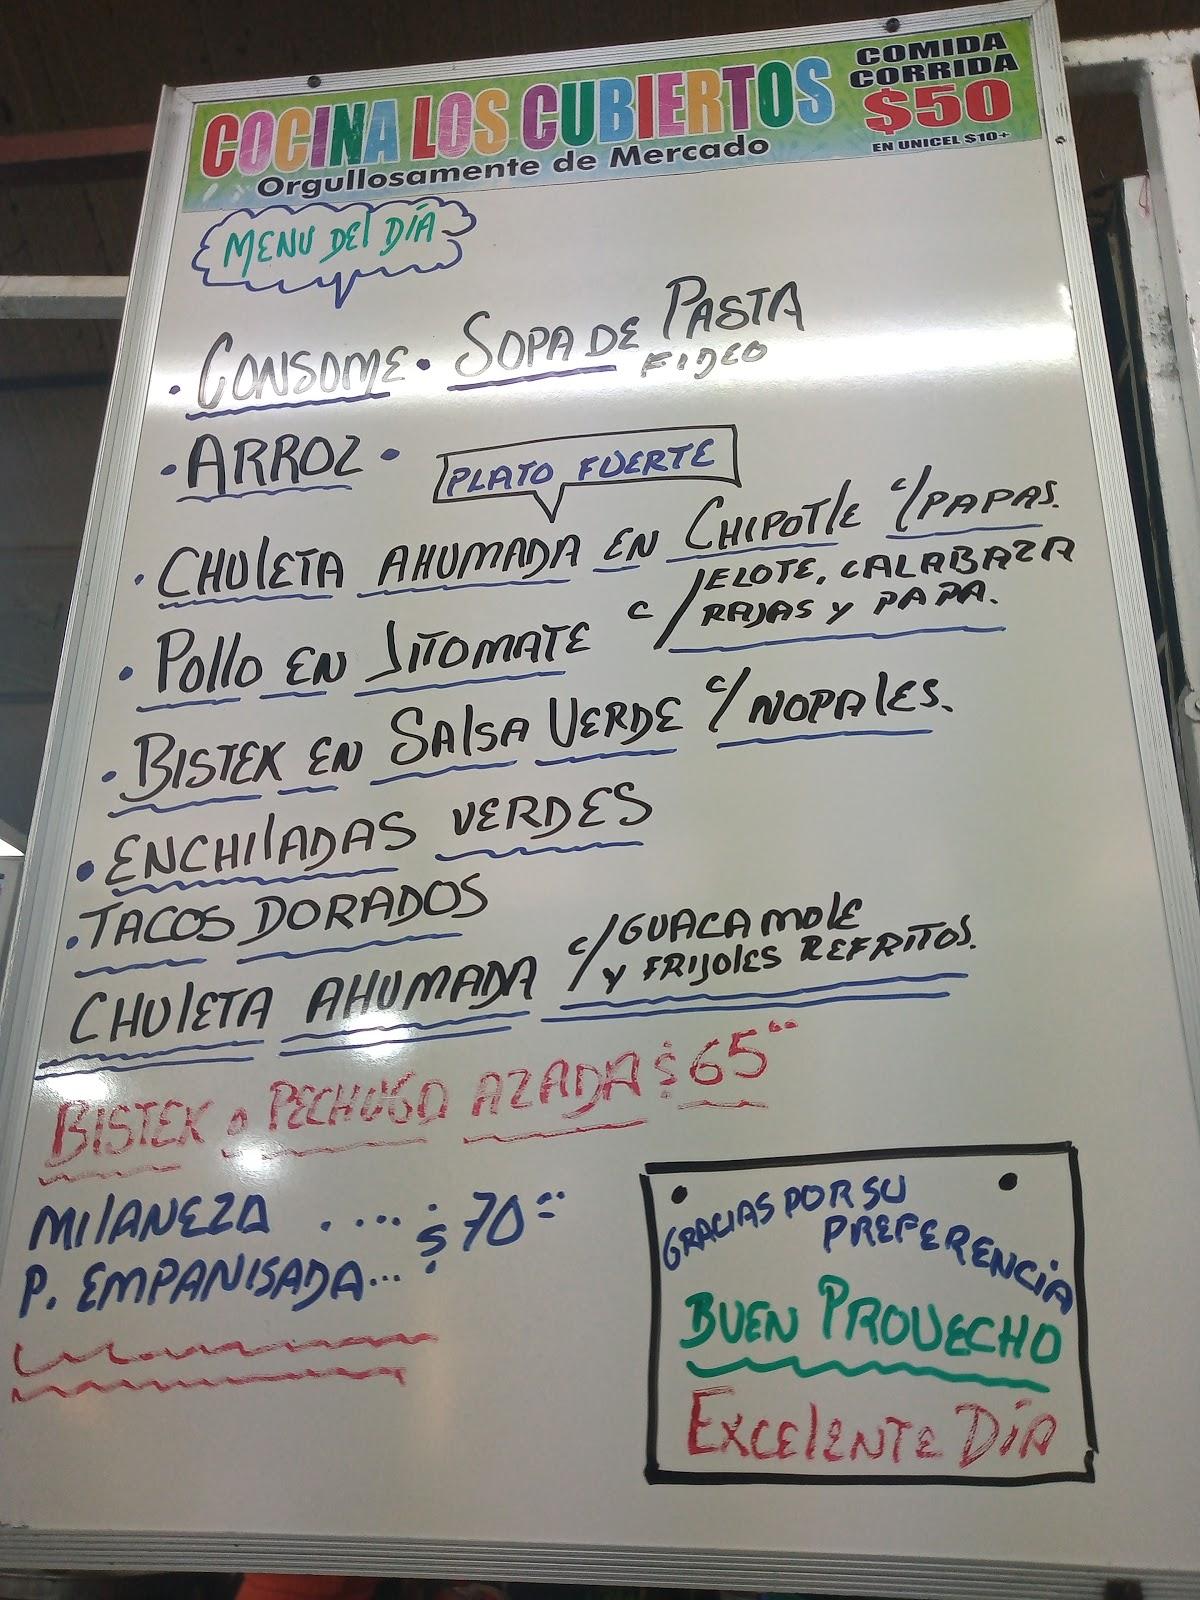 COCINA LOS CUBIERTOS
Orgullosamente de Mercado
COMIDA
CORRIDA
$50
EN UNICEL $10+
MENU DEL DÍA
• CONSOME • SOPA DE PASTA
FIDEO
• ARROZ •
PLATO FUERTE
• CHULETA AHUMADA EN CHIPOTLE c/PAPAS.
• POLLO EN JITOMATE c/ELOTE, CALABAZA
RAJAS Y PAPA.
• BISTEK EN SALSA VERDE c/NOPALES.
• ENCHILADAS VERDES
• TACOS DORADOS
CHULETA AHUMADA c/GUACAMOLE
Y FRIJOLES REFRITOS.
BISTEK o PECHUGA AZADA $65
MILANEZA .... $70
P. EMPANISADA...
GRACIAS POR SU
PREFERENCIA
BUEN PROVECHO
EXCELENTE DÍA